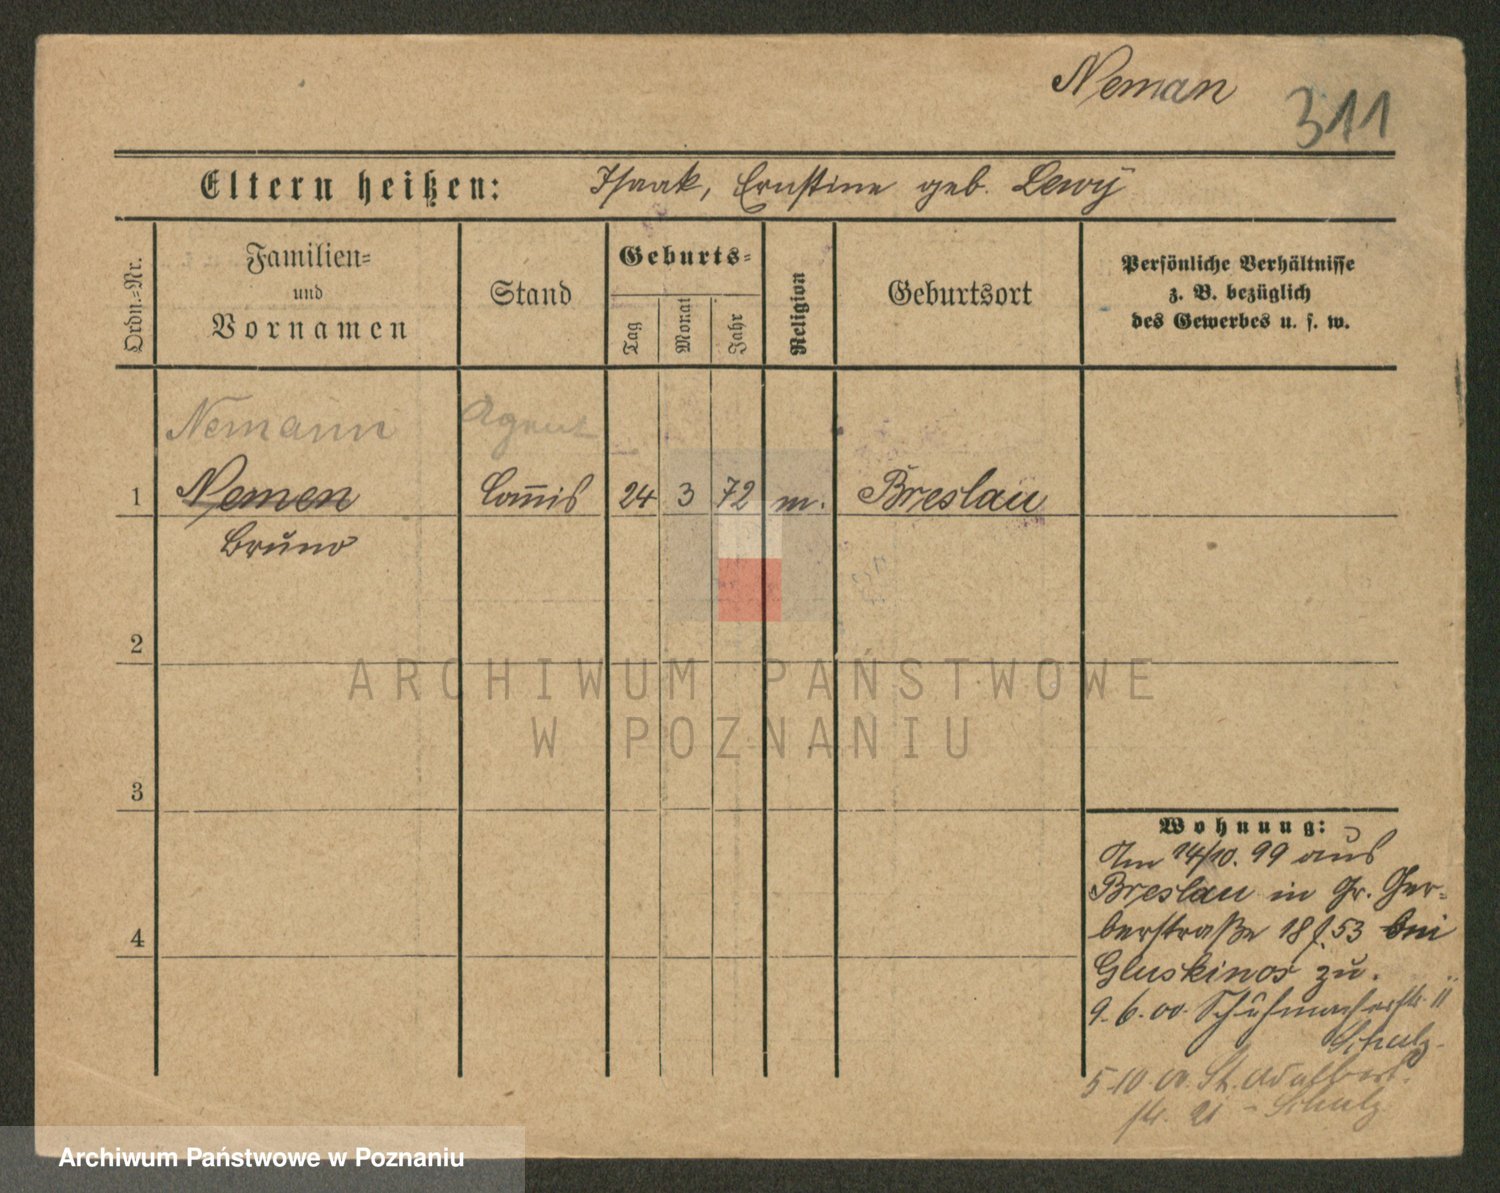 Neman
311
Eltern heißen: Isaak, Ernstine geb. Lewy
Ordn.-Nr.
Familien-
und
Vornamen
Stand
Geburts-
Tag
Monat
Jahr
Religion
Geburtsort
Persönliche Verhältnisse
z. B. bezüglich
des Gewerbes u. s. w.
Nemann Agent
1 Nemen Commis 24 3 72 m. Breslau
Bruno
2
3
4
Wohnung:
Am 14/10. 99 aus
Breslau in Gr. Ger-
berstraße 18 53 bei
Gluskinos zu.
9.6.00. Schuhmacherstr. 11
Schulz.
5 10 00. St. Adalbert
str. 21 - Schulz
ARCHIWUM PAŃSTWOWE
W POZNANIU
Archiwum Państwowe w Poznaniu